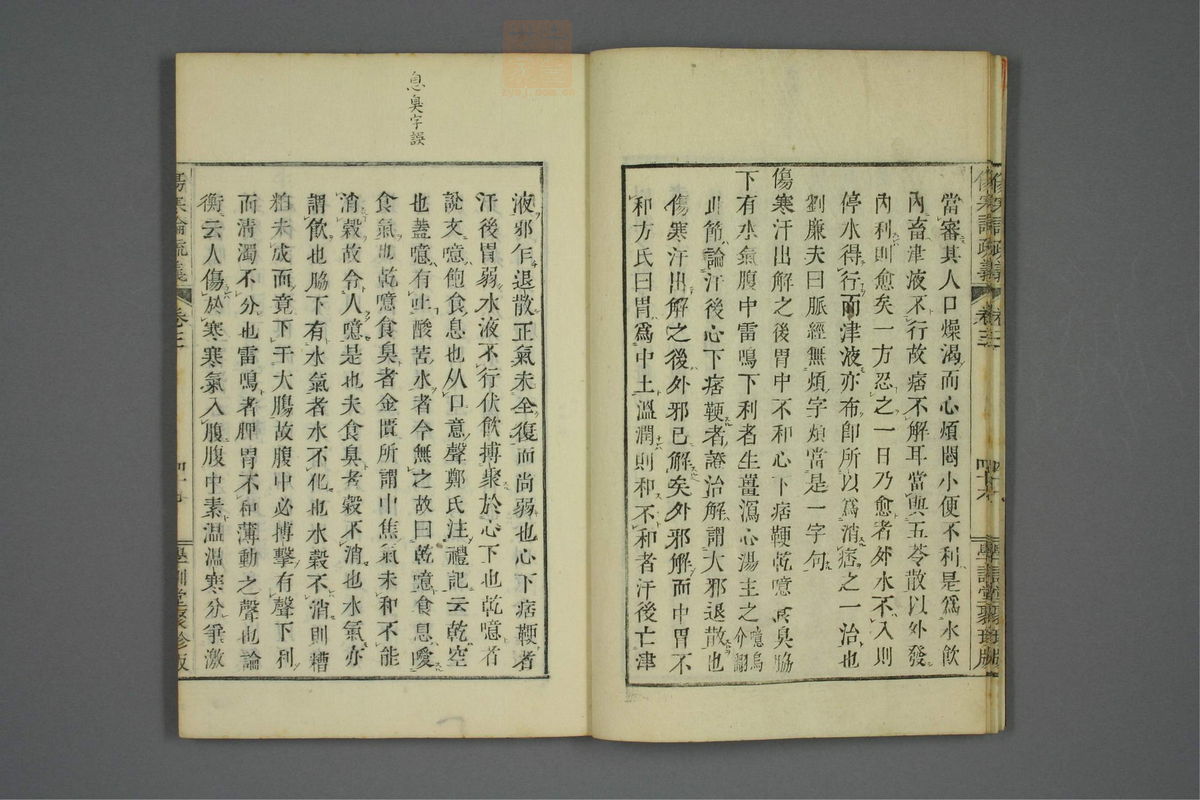 當審其人口燥渴而心煩悶小便不利是爲水飮
內畜津液不行故痞不解耳當與五苓散以外發
內利則愈矣一方忍之一日乃愈者外水不入則
停水得行而津液亦布卽所以爲消痞之一治也
劉廉夫曰脈經無煩字煩當是一字句
傷寒汗出解之後胃中不和心下痞鞕乾噫食臭脇
下有水氣腹中雷鳴下利者生薑瀉心湯主之噫烏介翻
此節論汗後心下痞鞕者證治解謂大邪退散也
傷寒汗出解之後外邪已解矣外邪解而中胃不
和方氏曰胃爲中土溫潤則和不和者汗後亡津
傷寒論疏義
卷三
學訓堂聚珍版
液邪乍退散正氣未全復而尚弱也心下痞鞕者
汗後胃弱水液不行伏飮搏聚於心下也乾噫者
說文噫飽食息也从口意聲鄭氏注禮記云乾空
也蓋噫有吐酸苦水者今無之故曰乾噫食息噯
食氣也乾噫食臭者金匱所謂中焦氣未和不能
消穀故令人噫是也夫食臭者穀不消也水氣亦
謂飮也脇下有水氣者水不化也水穀不消則糟
粕未成而竟下于大腸故腹中必搏擊有聲下利
而清濁不分也雷鳴者脾胃不和薄動之聲也論
衡云人傷於寒寒氣入腹腹中素温温寒分爭激
息臭字誤
傷寒論疏義
卷三
學訓堂聚珍版